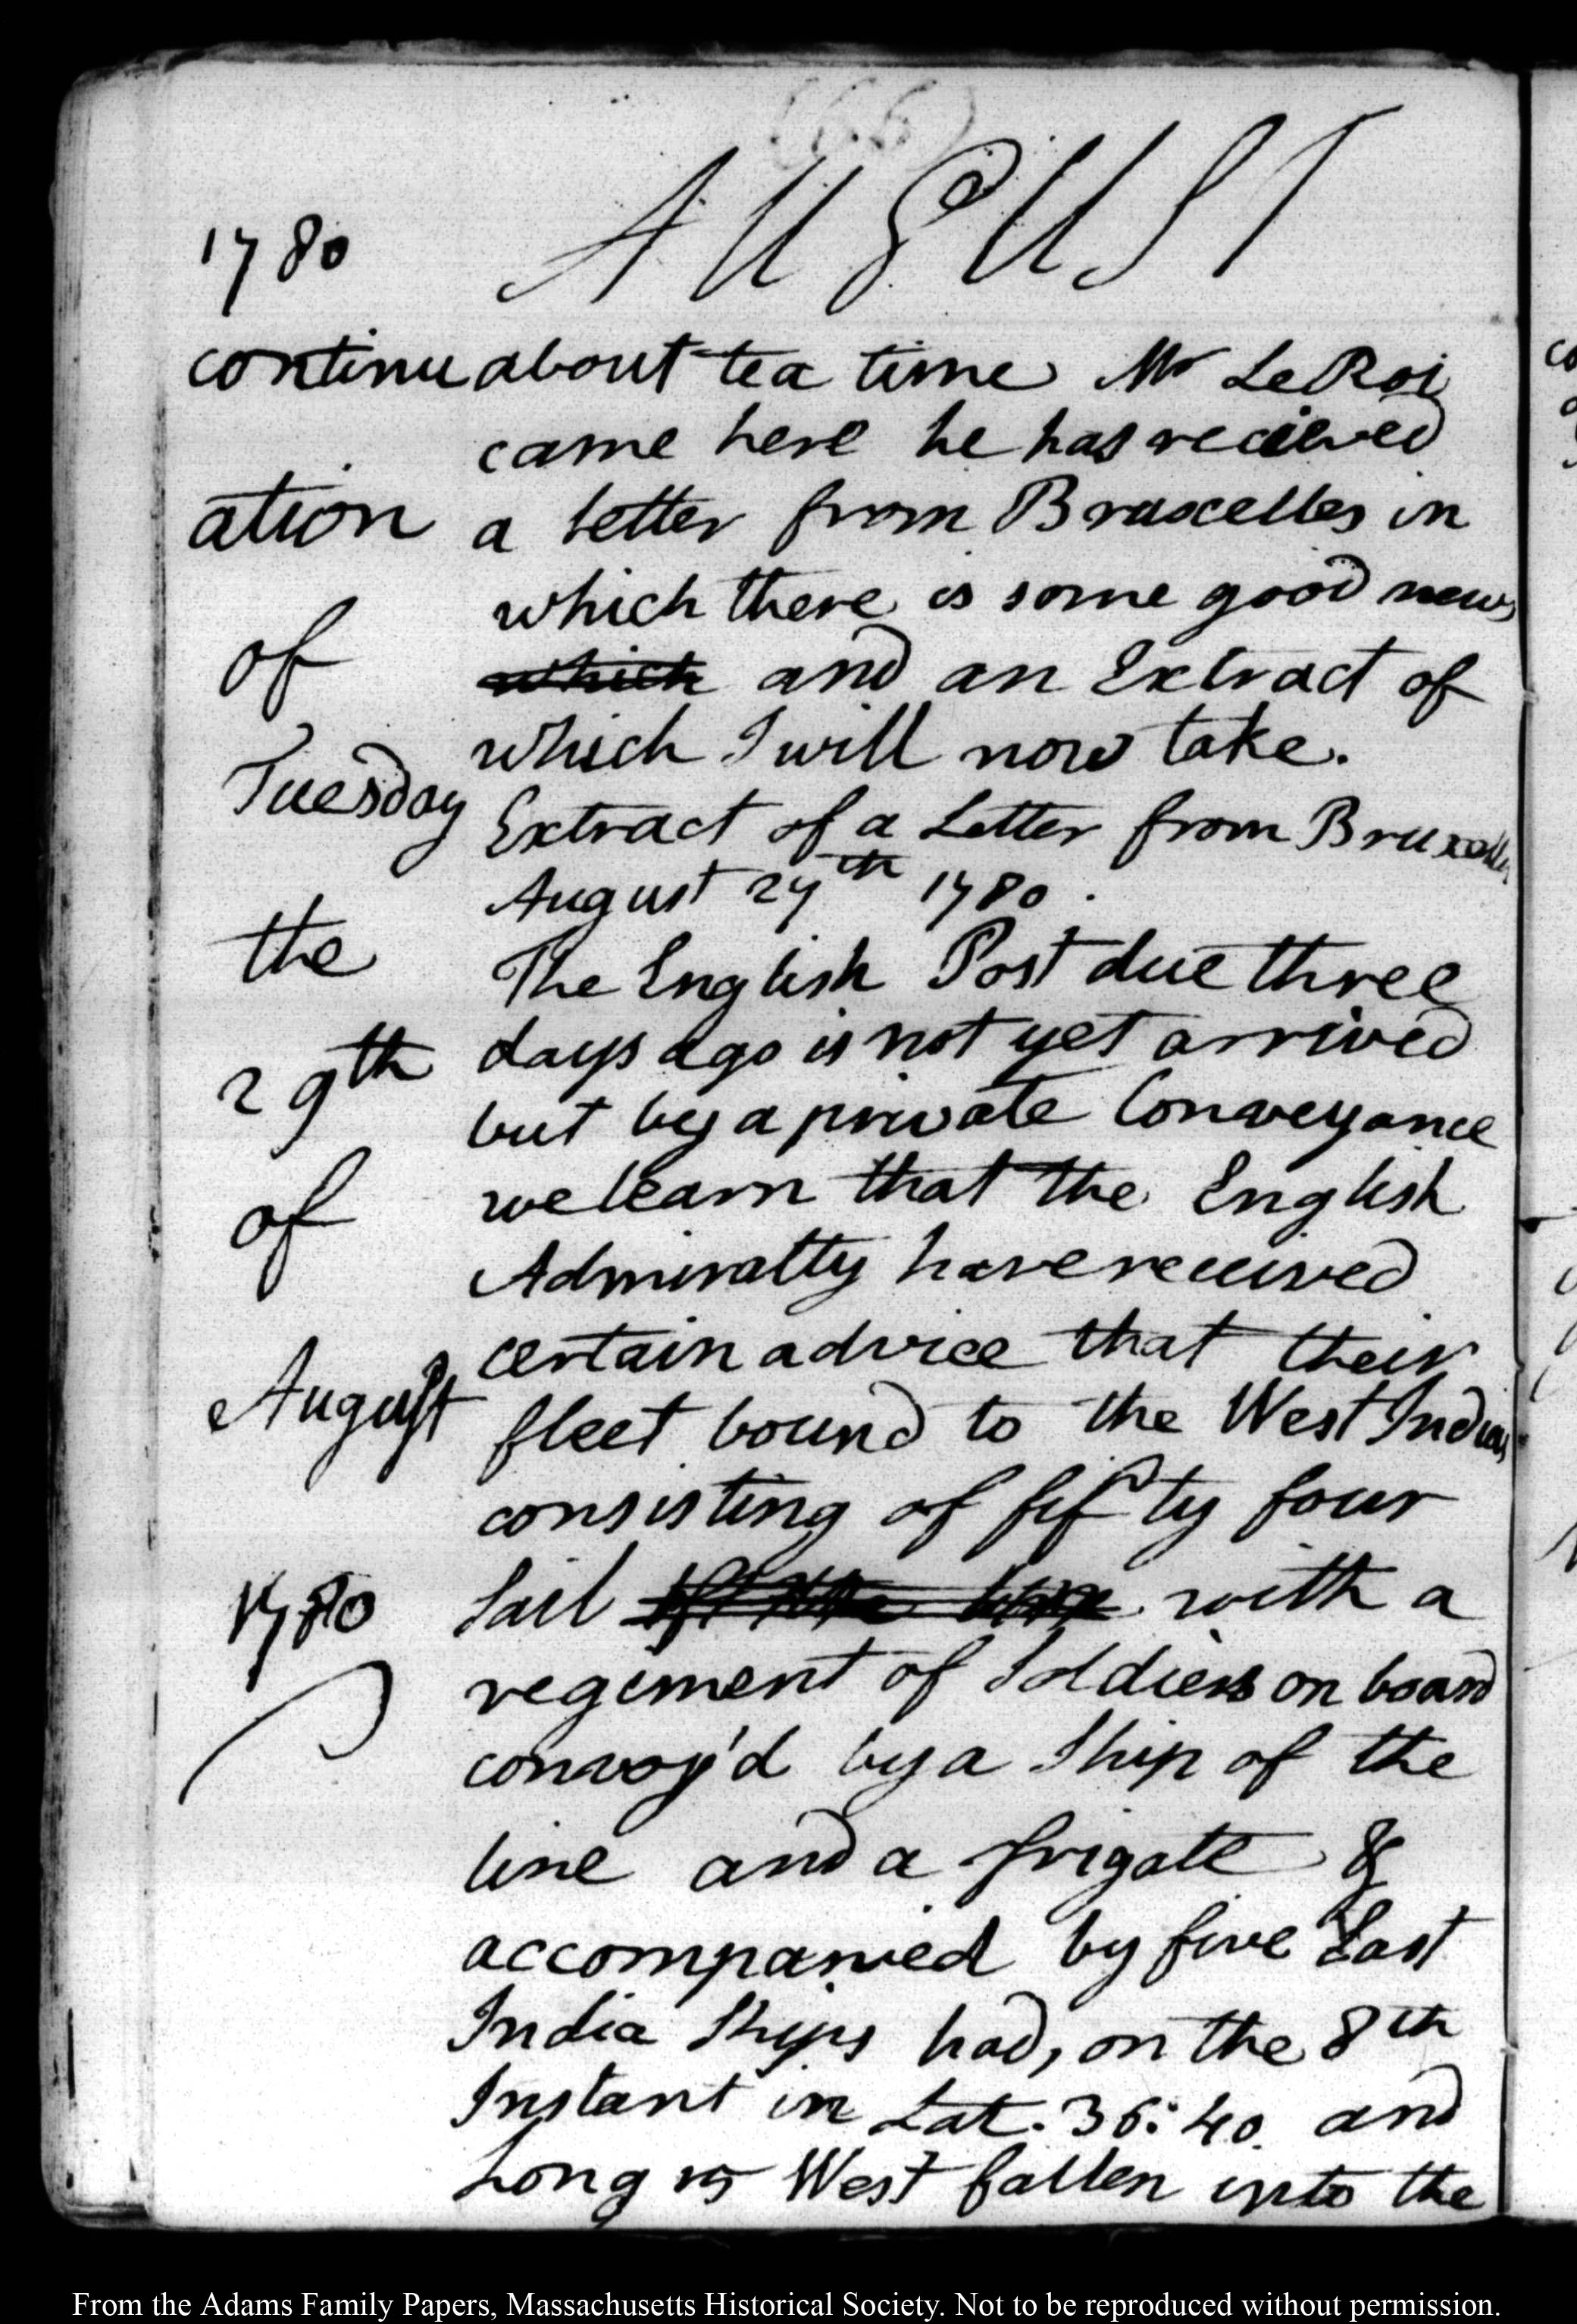 (66)
AUGUST
1780
continu
ation
of
Tuesday
the
29th
of
August
1780
about tea time Mr LeRoi
came here he has recieved
a letter from Bruxelles in
which there is some good news
which and an Extract of
which I will now take.
Extract of a Letter from Bruxelles
August 27th 1780.
The English Post due three
days ago is not yet arrived
but by a private Conveyance
we learn that the English
Admiralty have received
certain advice that their
fleet bound to the West Indias
consisting of fifty four
Sail with a
regiment of Soldiers on board
convoy'd by a Ship of the
line and a frigate &
accompanied by five East
India Ships had, on the 8th
Instant in Lat. 36:40. and
Long 15 West fallen into the
From the Adams Family Papers, Massachusetts Historical Society. Not to be reproduced without permission.